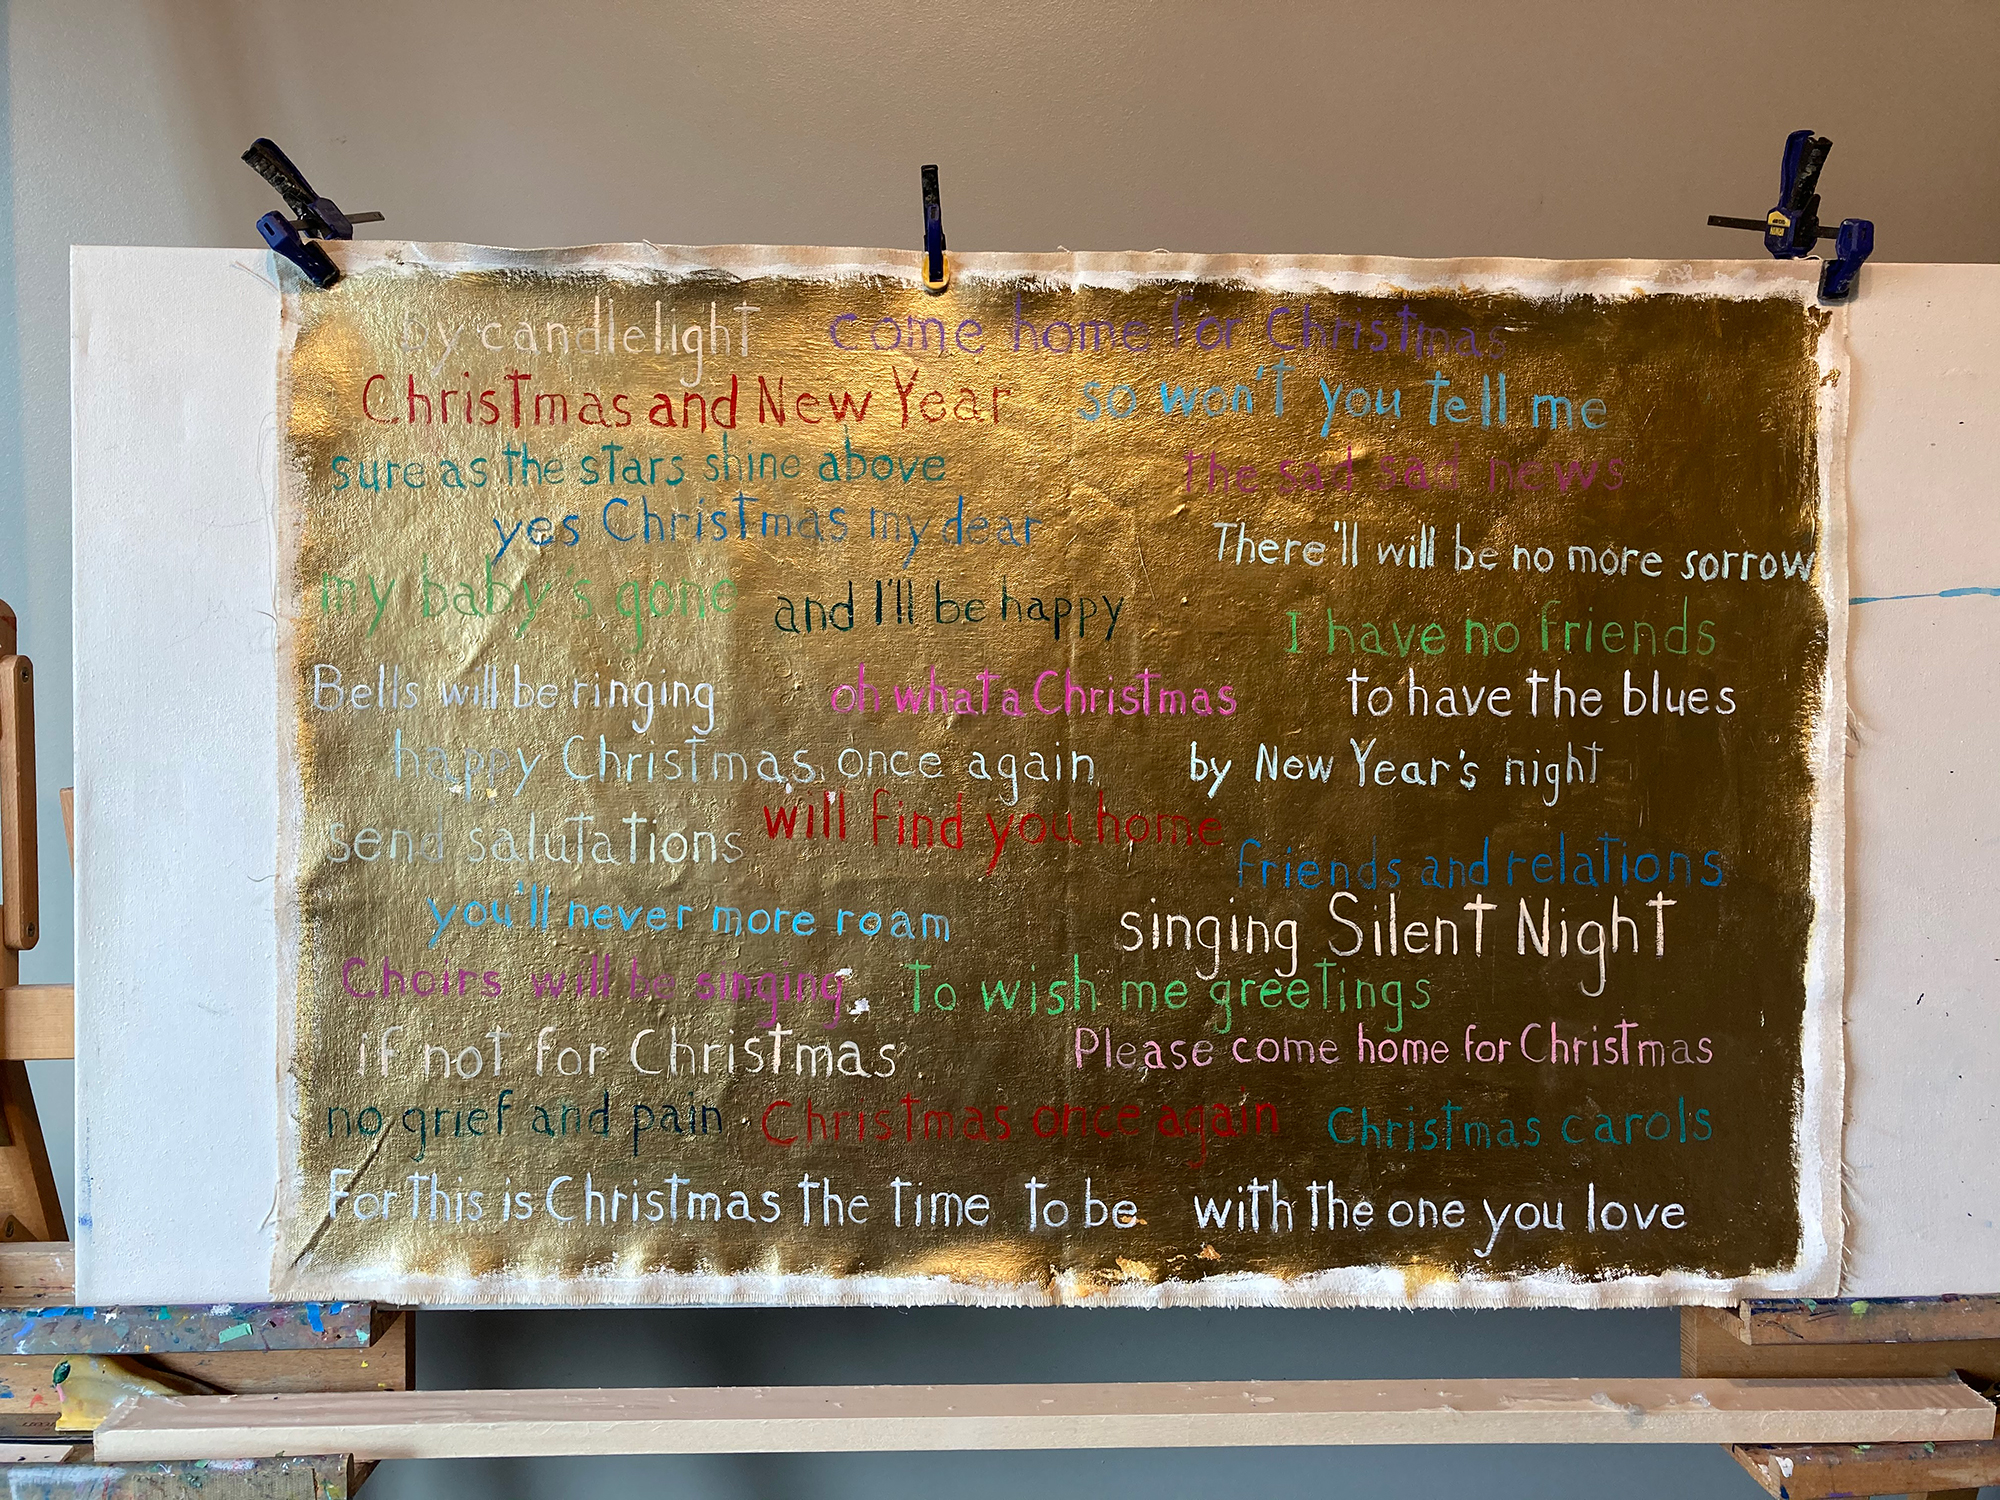 by candlelight come home for Christmas
Christmas and New Year so won't you tell me
sure as the stars shine above the sad sad news
yes Christmas my dear There'll will be no more sorrow
my baby's gone and I'll be happy I have no friends
Bells will be ringing oh what a Christmas to have the blues
happy Christmas once again by New Year's night
send salutations will find you home friends and relations
you'll never more roam singing Silent Night
Choirs will be singing. To wish me greetings
if not for Christmas. Please come home for Christmas
no grief and pain. Christmas once again Christmas carols
For this is Christmas the time to be with the one you love